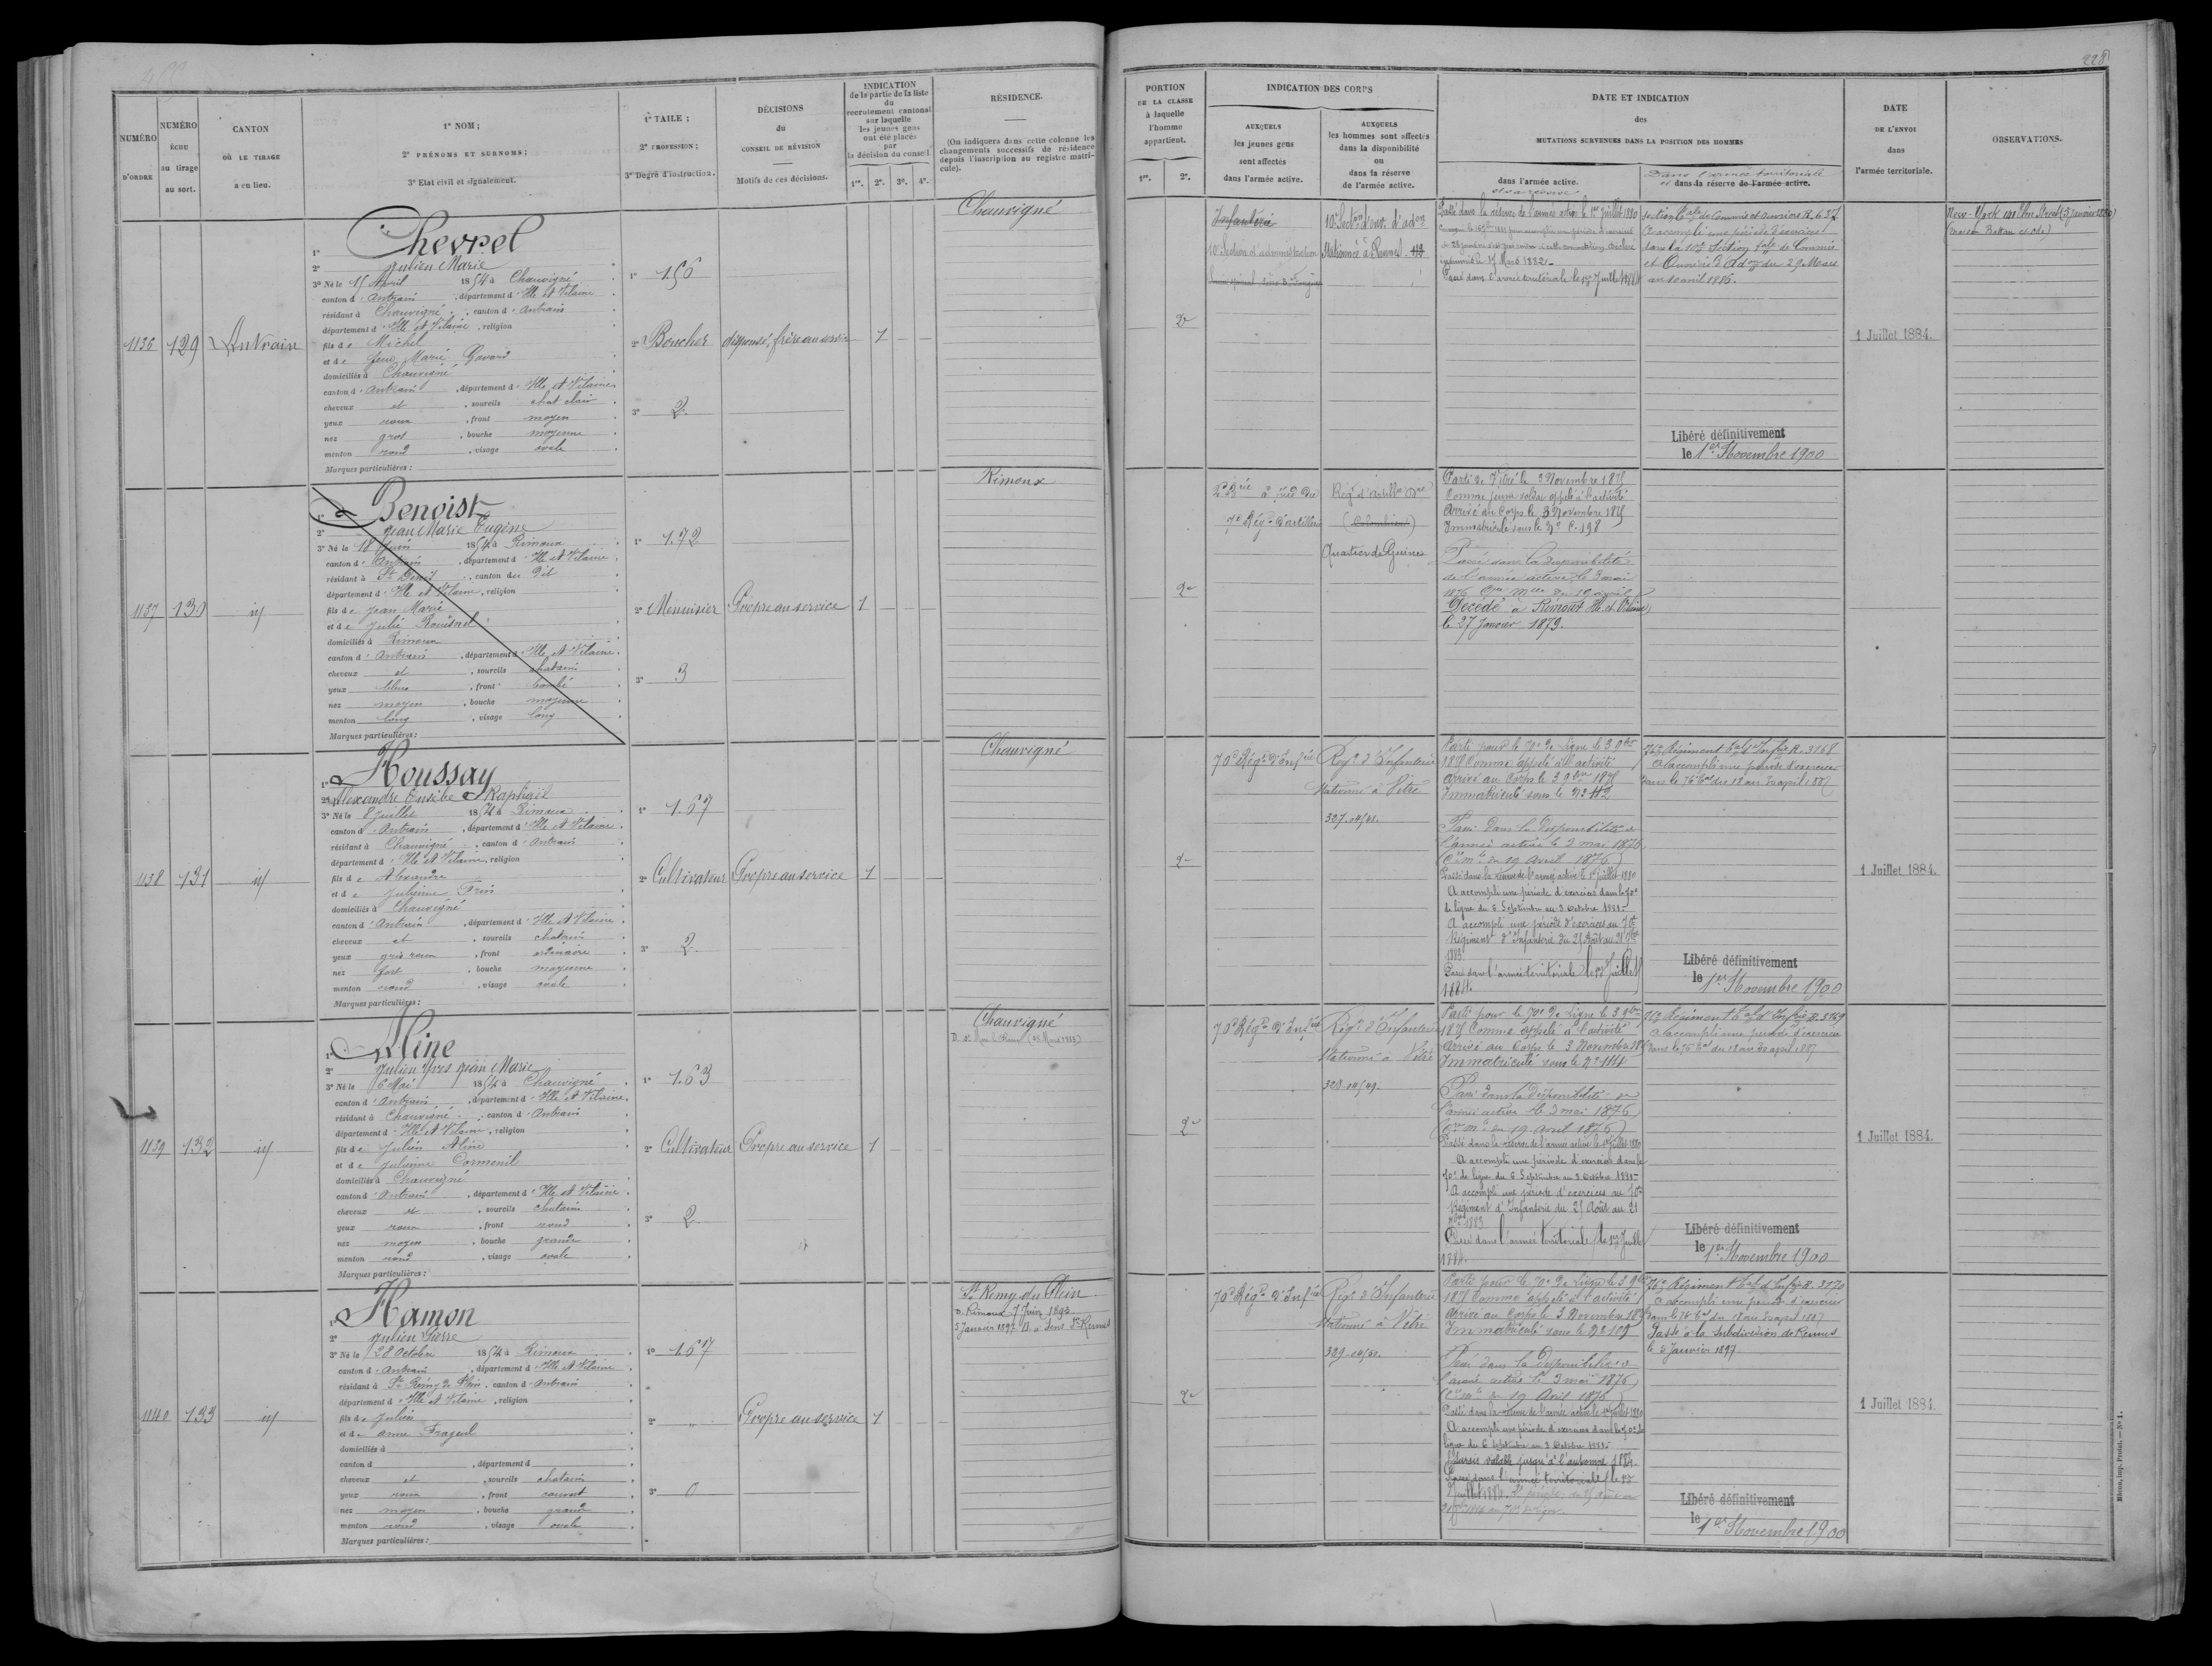 228
NUMÉRO
D'ORDRE
NUMÉRO
ÉCHU
au tirage
au sort.
CANTON
OÙ LE TIRAGE
a eu lieu.
1° NOM ;
2° PRÉNOMS ET SURNOMS ;
3° Etat civil et signalement.
1° TAILE ;
2° PROFESSION ;
3° Degré d'instruction.
DÉCISIONS
du
CONSEIL DE RÉVISION
Motifs de ces décisions.
INDICATION
de la partie de la liste
du
recrutement cantonal
sur laquelle
les jeunes gens
ont été placés
par
la décision du conseil
1re. 2e. 3e. 4e.
RÉSIDENCE.
(On indiquera dans cette colonne les
changements successifs de résidence
depuis l'inscription au registre matri-
cule).
PORTION
DE LA CLASSE
à laquelle
l'homme
appartient.
1re. 2e.
INDICATION DES CORPS
AUXQUELS
les jeunes gens
sont affectés
dans l'armée active.
AUXQUELS
les hommes sont affectés
dans la disponibilité
ou
dans la réserve
de l'armée active.
DATE ET INDICATION
des
MUTATIONS SURVENUES DANS LA POSITION DES HOMMES
dans l'armée active.
et sa réserve
Dans l'armée territoriale
et dans la réserve de l'armée active.
DATE
DE L'ENVOI
dans
l'armée territoriale.
OBSERVATIONS.
1136
129
Antrain
1° Chevrel
2° Julien Marie
3° Né le 15 Avril 1854 à Chauvigné
canton d'Antrain, département d'Ille et Vilaine
résidant à Chauvigné, canton d'Antrain
département d'Ille et Vilaine, religion
fils de Michel
et de feue Marie Gavard
domiciliés à Chauvigné
canton d'Antrain, département d'Ille et Vilaine
cheveux et, sourcils chat clair
yeux roux, front moyen
nez gros, bouche moyenne
menton rond, visage ovale
Marques particulières :
1° 1.56
2° Boucher
3° 2
dispensé, frère au service
1
Chauvigné
2e
Infanterie
10e Section d'administration
10e Secton d'ouv. d'adon
Stationnée à Rennes
Passé dans la réserve de l'armée active le 1er juillet 1880
le 15 Mars 1882
Passé dans l'armée territoriale le 1er Juillet 1884
Section tale de Commis et Ouvriers R. 637
A accompli une période d'exercices
dans la 10e Section tale de Commis
et Ouvriers d'Adon du 29 Mars
au 10 avril 1886.
Libéré définitivement
le 1er Novembre 1900
1 Juillet 1884.
New-York 141 Elm Street (3 janvier 1880)
1137
130
id
1° Benoist
2° Jean Marie Eugène
3° Né le 18 Juin 1854 à Rimoux
canton d'Antrain, département d'Ille et Vilaine
résidant à St Denis, canton de Dol
département d'Ille et Vilaine, religion
fils de Jean Marie
et de Julie
domiciliés à Rimoux
canton d'Antrain, département d'Ille et Vilaine
cheveux et, sourcils chatain
yeux bleus, front bombé
nez moyen, bouche moyenne
menton long, visage long
Marques particulières :
1° 1.72
2° Menuisier
3° 3
Propre au service
1
Rimoux
2e
7e Régt d'artillerie
(Colombier)
Quartier de Guines
Parti de Vitré le 3 Novembre 1875
Comme jeune soldat appelé à l'activité
Arrivé au Corps le 3 Novembre 1875
Immatriculé sous le No C. 198
Passé dans la disponibilité
de l'armée active le 3 mai
1876 Cre Mlle du 19 avril
Décédé à Rimoux Ille et Vilaine
le 27 janvier 1879.
1138
131
id
1° Houssay
2° Alexandre Eusèbe Raphaël
3° Né le 8 Juillet 1854 à Rimoux
canton d'Antrain, département d'Ille et Vilaine
résidant à Chauvigné, canton d'Antrain
département d'Ille et Vilaine, religion
fils de Alexandre
et de Julienne
domiciliés à Chauvigné
canton d'Antrain, département d'Ille et Vilaine
cheveux et, sourcils chatain
yeux gris roux, front ordinaire
nez fort, bouche moyenne
menton rond, visage ovale
Marques particulières :
1° 1.67
2° Cultivateur
3° 2
Propre au service
1
Chauvigné
2e
70e Régt d'Infrie
Regt d'Infanterie
stationné à Vitré
Parti pour le 70e de Ligne le 3 9bre
1875 Comme appelé à l'activité
Arrivé au Corps le 3 9bre 1875
Immatriculé sous le No 112
Passé dans la disponibilité de
l'armée active le 3 mai 1876
(Cre mle du 19 Avril 1876)
Passé dans la réserve de l'armée active le 1er juillet 1880
A accompli une période d'exercices dans le 70e
de ligne du 6 Septembre au 3 Octobre 1881
A accompli une période d'exercices au 70e
Régiment d'Infanterie du 25 Août au 21 7bre
1883
Passé dans l'armée territoriale le 1er Juillet
1884.
76e Régiment tal d'Infrie R. 3168
A accompli une période d'exercices
dans le 76e tal du 18 au 30 avril 1887
Libéré définitivement
le 1er Novembre 1900
1 Juillet 1884.
1139
132
id
1° Aline
2° Julien Yves Jean Marie
3° Né le 6 Mai 1854 à Chauvigné
canton d'Antrain, département d'Ille et Vilaine
résidant à Chauvigné, canton d'Antrain
département d'Ille et Vilaine, religion
fils de Julien Aline
et de Julienne Cormenil
domiciliés à Chauvigné
canton d'Antrain, département d'Ille et Vilaine
cheveux et, sourcils chatain
yeux roux, front rond
nez moyen, bouche grande
menton rond, visage ovale
Marques particulières :
1° 1.63
2° Cultivateur
3° 2
Propre au service
1
Chauvigné
2e
70e Régt d'Infrie
Regt d'Infanterie
stationné à Vitré
Parti pour le 70e de Ligne le 3 9bre
1875 Comme appelé à l'activité
Arrivé au Corps le 3 Novembre 1875
Immatriculé sous le No 114
Passé dans la disponibilité de
l'armée active le 3 mai 1876
(Cre mle du 19 avril 1876)
Passé dans la réserve de l'armée active le 1er juillet 1880
A accompli une période d'exercices dans le
70e de ligne du 6 Septembre au 3 Octobre 1881
A accompli une période d'exercices au 70e
Régiment d'Infanterie du 25 Août au 21
7bre 1883
Passé dans l'armée territoriale le 1er Juillet
1884.
76e Régiment tal d'Infrie R. 3169
A accompli une période d'exercices
dans le 76e tal du 18 au 30 avril 1887
Libéré définitivement
le 1er Novembre 1900
1 Juillet 1884.
1140
133
id
1° Hamon
2° Julien Pierre
3° Né le 28 Octobre 1854 à Rimoux
canton d'Antrain, département d'Ille et Vilaine
résidant à St Rémy du Plein, canton d'Antrain
département d'Ille et Vilaine, religion
fils de Julien
et de Anne Frageul
domiciliés à
canton d , département d
cheveux et, sourcils chatain
yeux roux, front couvert
nez moyen, bouche grande
menton rond, visage ovale
Marques particulières :
1° 1.67
2° "
3° 0
Propre au service
1
St Remy du Plein
D. Rimoux 7 Juin 1893
5 Janvier 1897 D. à Sens
2e
70e Régt d'Infrie
Regt d'Infanterie
stationné à Vitré
Parti pour le 70e de Ligne le 3 9bre
1875 Comme appelé à l'activité
Arrivé au Corps le 3 Novembre 1875
Immatriculé sous le No 109
Passé dans la disponibilité de
l'armée active le 3 mai 1876
(Cre mle du 19 Avril 1876)
Passé dans la réserve de l'armée active le 1er juillet 1880
A accompli une période d'exercices dans le 70e de
ligne du 6 septembre au 3 Octobre 1881
Sursis valable jusqu'à l'automne 1884.
Passé dans l'armée territoriale le 1er
Juillet 1884.
76e Régiment tal d'Infrie R. 3170
A accompli une période d'exercices
dans le 76e tal du 18 au 30 avril 1887
Passé à la subdivision de Rennes
le 5 Janvier 1897
Libéré définitivement
le 1er Novembre 1900
1 Juillet 1884.
Mâcon, imp. Protat. — No 1.